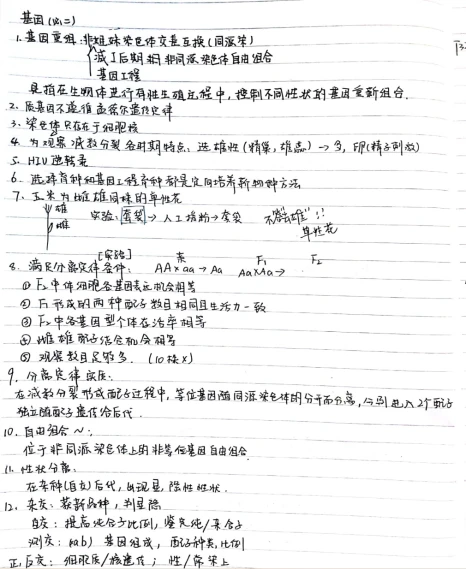 基因(必二)
1. 基因重组:非姐妹染色体交叉互换(同源染)
减Ⅰ后期 非同源染色体自由组合
基因工程
是指在生物体进行有性生殖过程中,控制不同性状的基因重新组合.
2. 质基因不遵循孟德尔遗传定律
3. 染色体只存在于细胞核
4. 为观察减数分裂各时期特点,选雄性(精巢,雄蕊)→多,卵(精子则数)
5. HIV 逆转录
6. 选择育种和基因工程育种都是定向培养新物种方法
7. 玉米为雌雄同株的单性花
雄
雌
实验:套袋→人工授粉→套袋
不需"去雄"!!
单性花
[实验]
8. 满足分离定律条件: AA×aa→Aa Aa×Aa→
亲 F₁ F₂
① F₂中体细胞各基因表达机会相等
② F₁形成的两种配子数目相同且生活力一致
③ F₂中各基因型个体存活率相等
④ 雌雄配子结合机会相等
⑤ 观察数目足够多. (10株×)
9. 分离定律实质:
在减数分裂形成配子过程中,等位基因随同源染色体的分开而分离,分别进入2个配子
独立随配子遗传给后代.
10. 自由组合~:
位于非同源染色体上的非等位基因自由组合
11. 性状分离:
在杂种(自交)后代,出现显,隐性性状.
12. 杂交:获新品种,判显隐
自交:提高纯合子比例,鉴定纯/杂合子
测交:基因组成,配子种类,比例
正反交:细胞质/核遗传;性/常染上